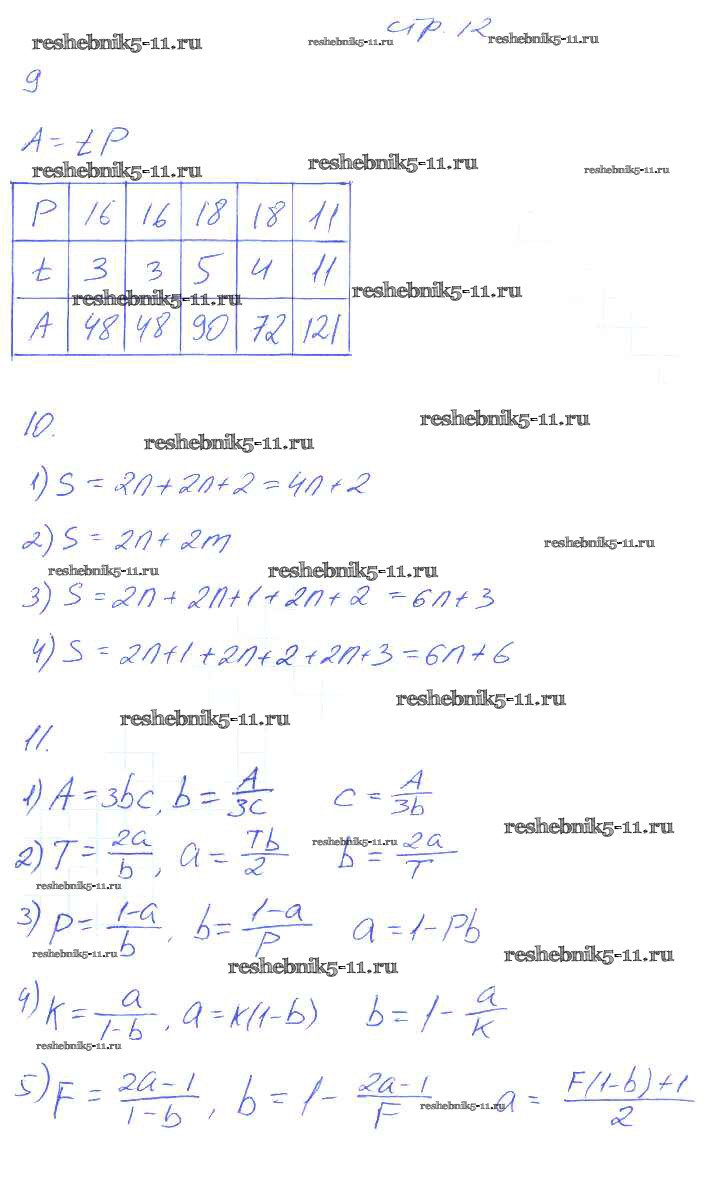 стр. 12
reshebnik5-11.ru reshebnik5-11.ru reshebnik5-11.ru
9
A = tP
reshebnik5-11.ru reshebnik5-11.ru reshebnik5-11.ru
P 16 16 18 18 11
t 3 3 5 4 11
reshebnik5-11.ru reshebnik5-11.ru
A 48 48 90 72 121
10.
reshebnik5-11.ru reshebnik5-11.ru
1) S = 2n + 2n + 2 = 4n + 2
2) S = 2n + 2m
reshebnik5-11.ru
reshebnik5-11.ru reshebnik5-11.ru
3) S = 2n + 2n+1 + 2n + 2 = 6n + 3
4) S = 2n+1 + 2n+2 + 2n+3 = 6n + 6
reshebnik5-11.ru
reshebnik5-11.ru
11.
1) A = 3bc, b = A/3c c = A/3b
reshebnik5-11.ru
2) T = 2a/b, a = Tb/2 b = 2a/T
reshebnik5-11.ru
reshebnik5-11.ru
3) P = 1-a/b, b = 1-a/P a = 1 - Pb
reshebnik5-11.ru reshebnik5-11.ru reshebnik5-11.ru
4) K = a/1-b, a = K(1-b) b = 1 - a/K
reshebnik5-11.ru
5) F = 2a-1/1-b, b = 1 - 2a-1/F a = F(1-b)+1/2
reshebnik5-11.ru